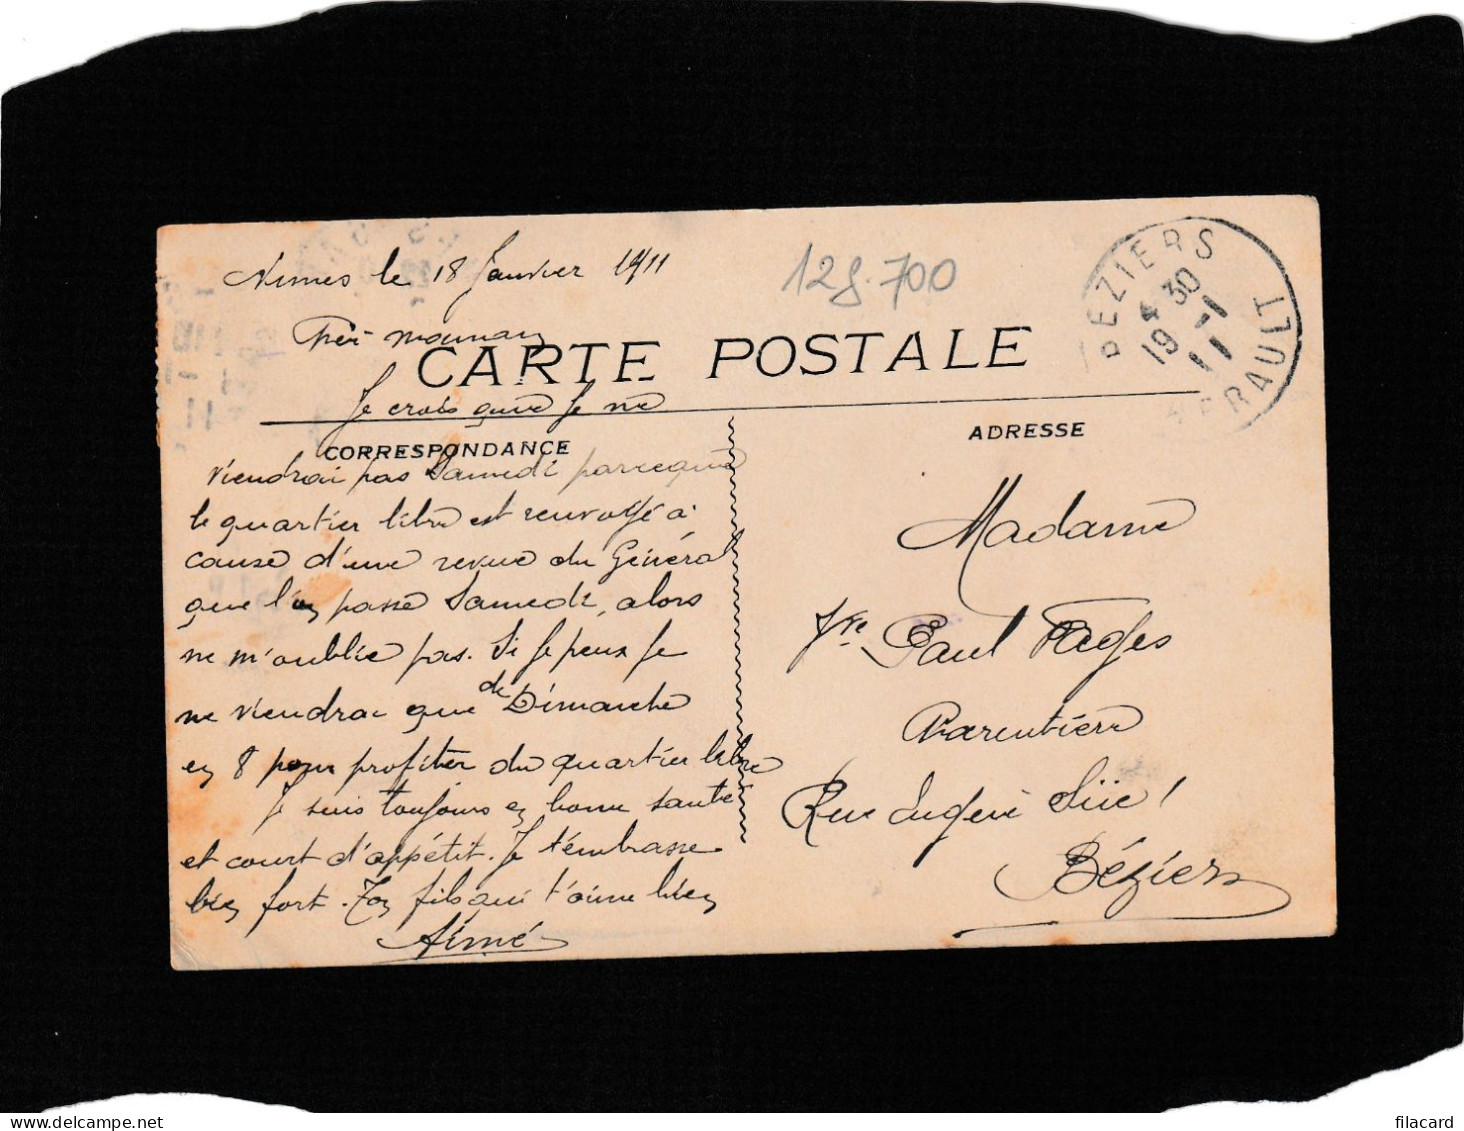 Nimes le 18 Janvier 1911
128.700
BEZIERS
4 30
19 -1
11
HERAULT
maman
CARTE POSTALE
Je crois que je ne
CORRESPONDANCE
ADRESSE
viendrai pas Samedi parceque
le quartier libre est renvoyé à
cause d'une revue du Général
que l'on passe Samedi, alors
ne m'oublie pas. Si je peux je
ne viendrai que de Dimanche
en 8 pour profiter du quartier libre
Je suis toujours en bonne santé
et court d'appétit. Je t'embrasse
bien fort. Ton fils qui t'aime bien
Aimé
Madame
Vve Paul Pages
Rue Eugène
Béziers
filacard